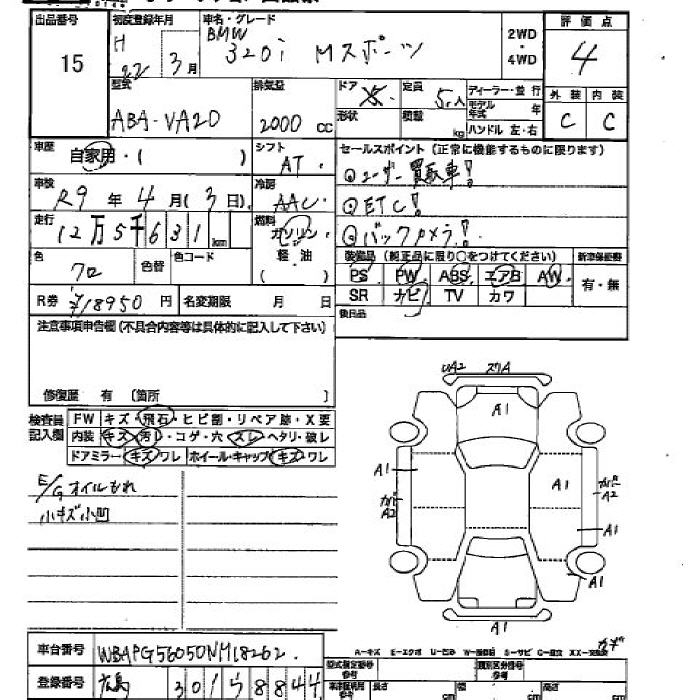 出品番号 初度登録年月 車名・グレード 評価点
15 H 22年 3月 BMW 320i Mスポーツ 2WD・4WD 4
型式 排気量 ドア 定員 ディーラー・並行 外装 内装
ABA-VA20 2000 cc 5 5人 モデル年式 年 C C
形状 積載 kg ハンドル 左・右
車歴 自家用・( ) シフト AT セールスポイント (正常に機能するものに限ります)
車検 R9年 4月(3日) 冷房 AAC ユーザー買取車!
走行 12万5千631km 燃料 ガソリン 軽・油 ( ) ETC!
バックカメラ!
色 クロ 色替 色コード 装備品 (純正品に限り〇をつけてください) 新車保証書
PS PW ABS エアB AW 有・無
R券 ¥18950円 名変期限 月 日 SR ナビ TV カワ
後日品
注意事項申告欄(不具合内容等は具体的に記入して下さい)
修復歴 有 〔箇所 〕
検査員記入欄 FW キズ・飛石・ヒビ割・リペア跡・X要
内装 キズ・汚レ・コゲ・穴・スレ・ヘタリ・破レ
ドアミラー・キズ・ワレ ホイール・キャップ・キズ・ワレ
E/Gオイルもれ
小キズ小凹
UA2 スリA
A1
A1 A1
A2 A2
A1
A1
A1
A-キズ E-エクボ U-凹み S-サビ C-腐食
車台番号 WBAPG56050NM18262
型式指定番号 類別区分番号
登録番号 広島 301 5 8844
長さ cm 幅 cm 高さ cm